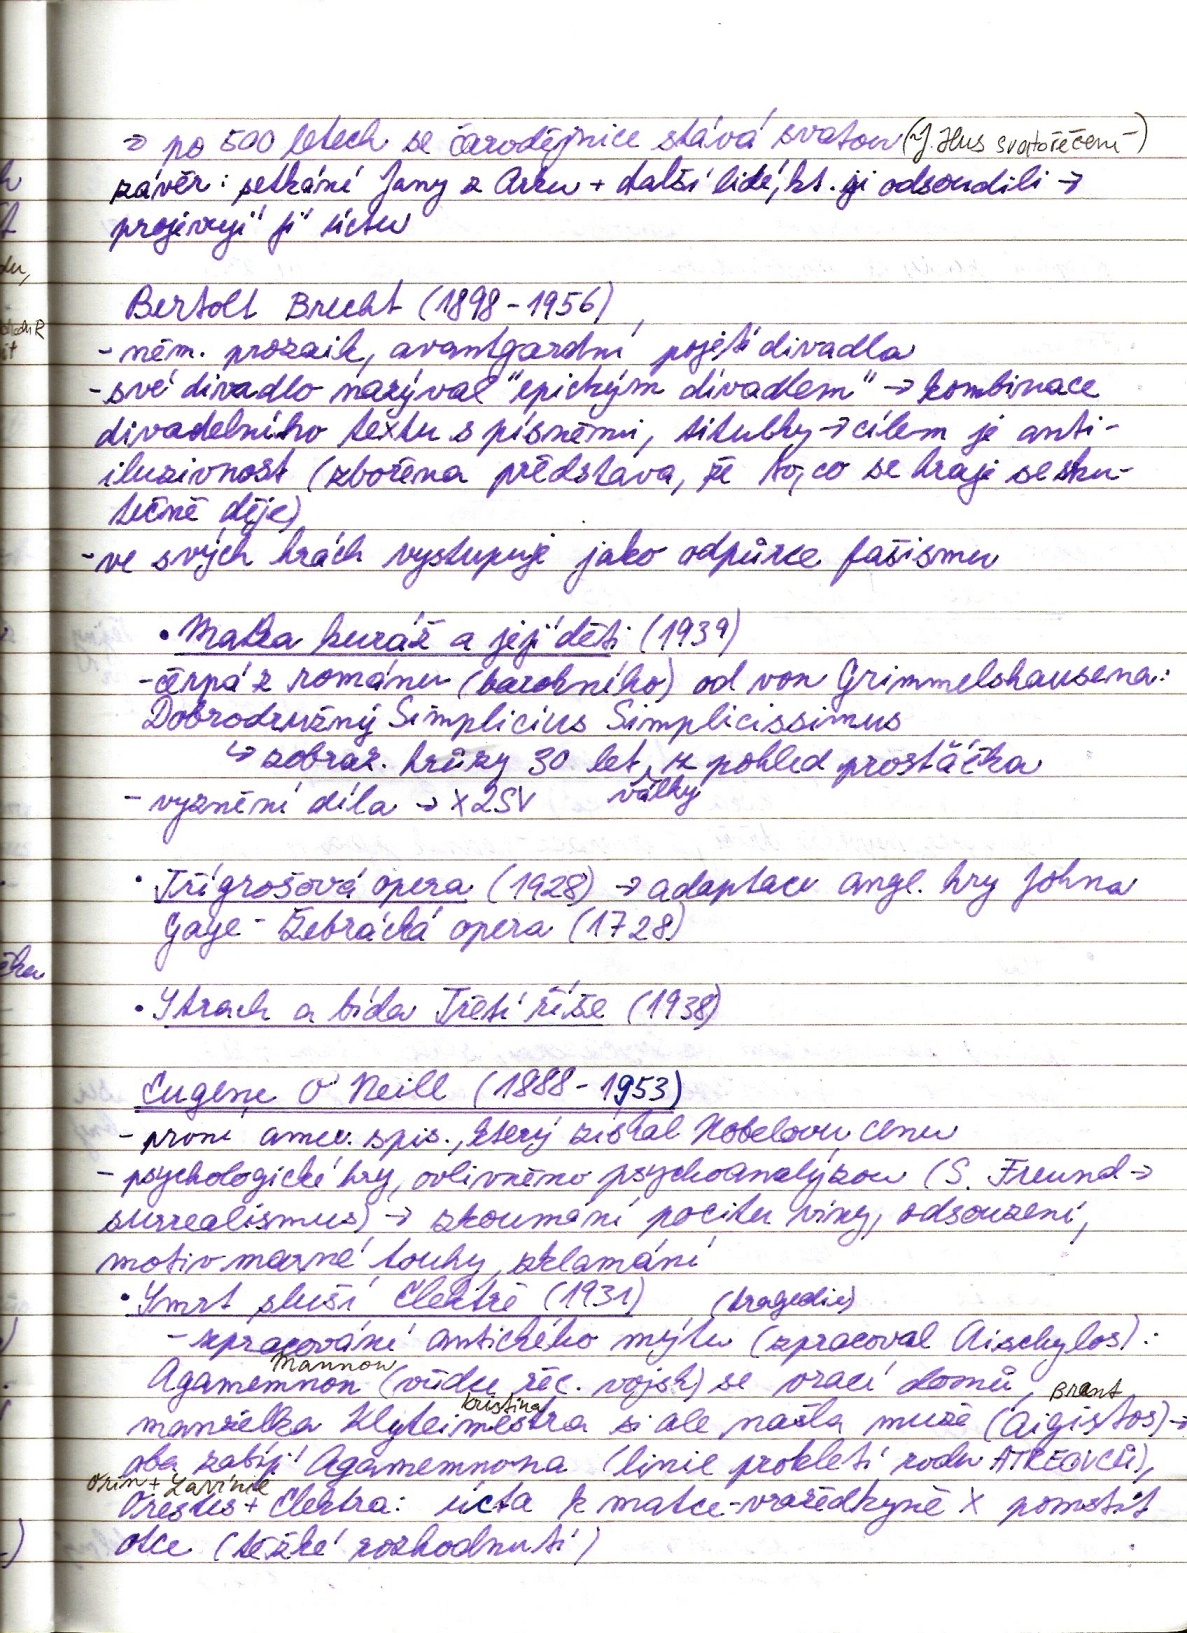 ⇒ po 500 letech se čarodějnice stává svatou (~J. Hus svatořečení –)
závěr: setkání Jany z Arku + další lidé, kt. ji odsoudili →
projevují jí úctu
Bertolt Brecht (1898-1956)
- něm. prozaik, avantgardní pojetí divadla
- své divadlo nazýval "epickým divadlem" → kombinace
divadelního textu s písněmi, titulky → cílem je anti-
iluzivnost (zbořena představa, že to, co se hraje se sku-
tečně děje)
- ve svých hrách vystupuje jako odpůrce fašismu
• Matka kuráž a její děti (1939)
- čerpá z románu (barokního) od von Grimmelshausena:
Dobrodružný Simplicius Simplicissimus
↳ zobraz. hrůzy 30 let. z pohled prosťáčka
války
- vyznění díla → X 2SV
• Třígrošová opera (1928) → adaptace angl. hry Johna
Gaye - Žebrácká opera (1728)
• Strach a bída Třetí říše (1938)
Eugene O'Neill (1888-1953)
- první amer. spis., který získal Nobelovu cenu
- psychologické hry, ovlivněno psychoanalýzou (S. Freund →
surrealismus) → zkoumání pocitu viny, odsouzení,
motiv marné touhy, zklamání
• Smrt sluší Elektře (1931) (tragedie)
- zpracování antického mýtu (zpracoval Aischylos):
Mannon
Agamemnon (vůdce řec. vojsk) se vrací domů,
Kristina Brant
manželka Klyteimestra si ale našla muže (Aigistos) →
oba zabijí Agamemnona (linie prokletí rodu ATREOVCŮ),
Orin + Lavinie
Orestes + Elektra: úcta k matce-vražedkyně X pomstít
otce (těžké rozhodnutí)